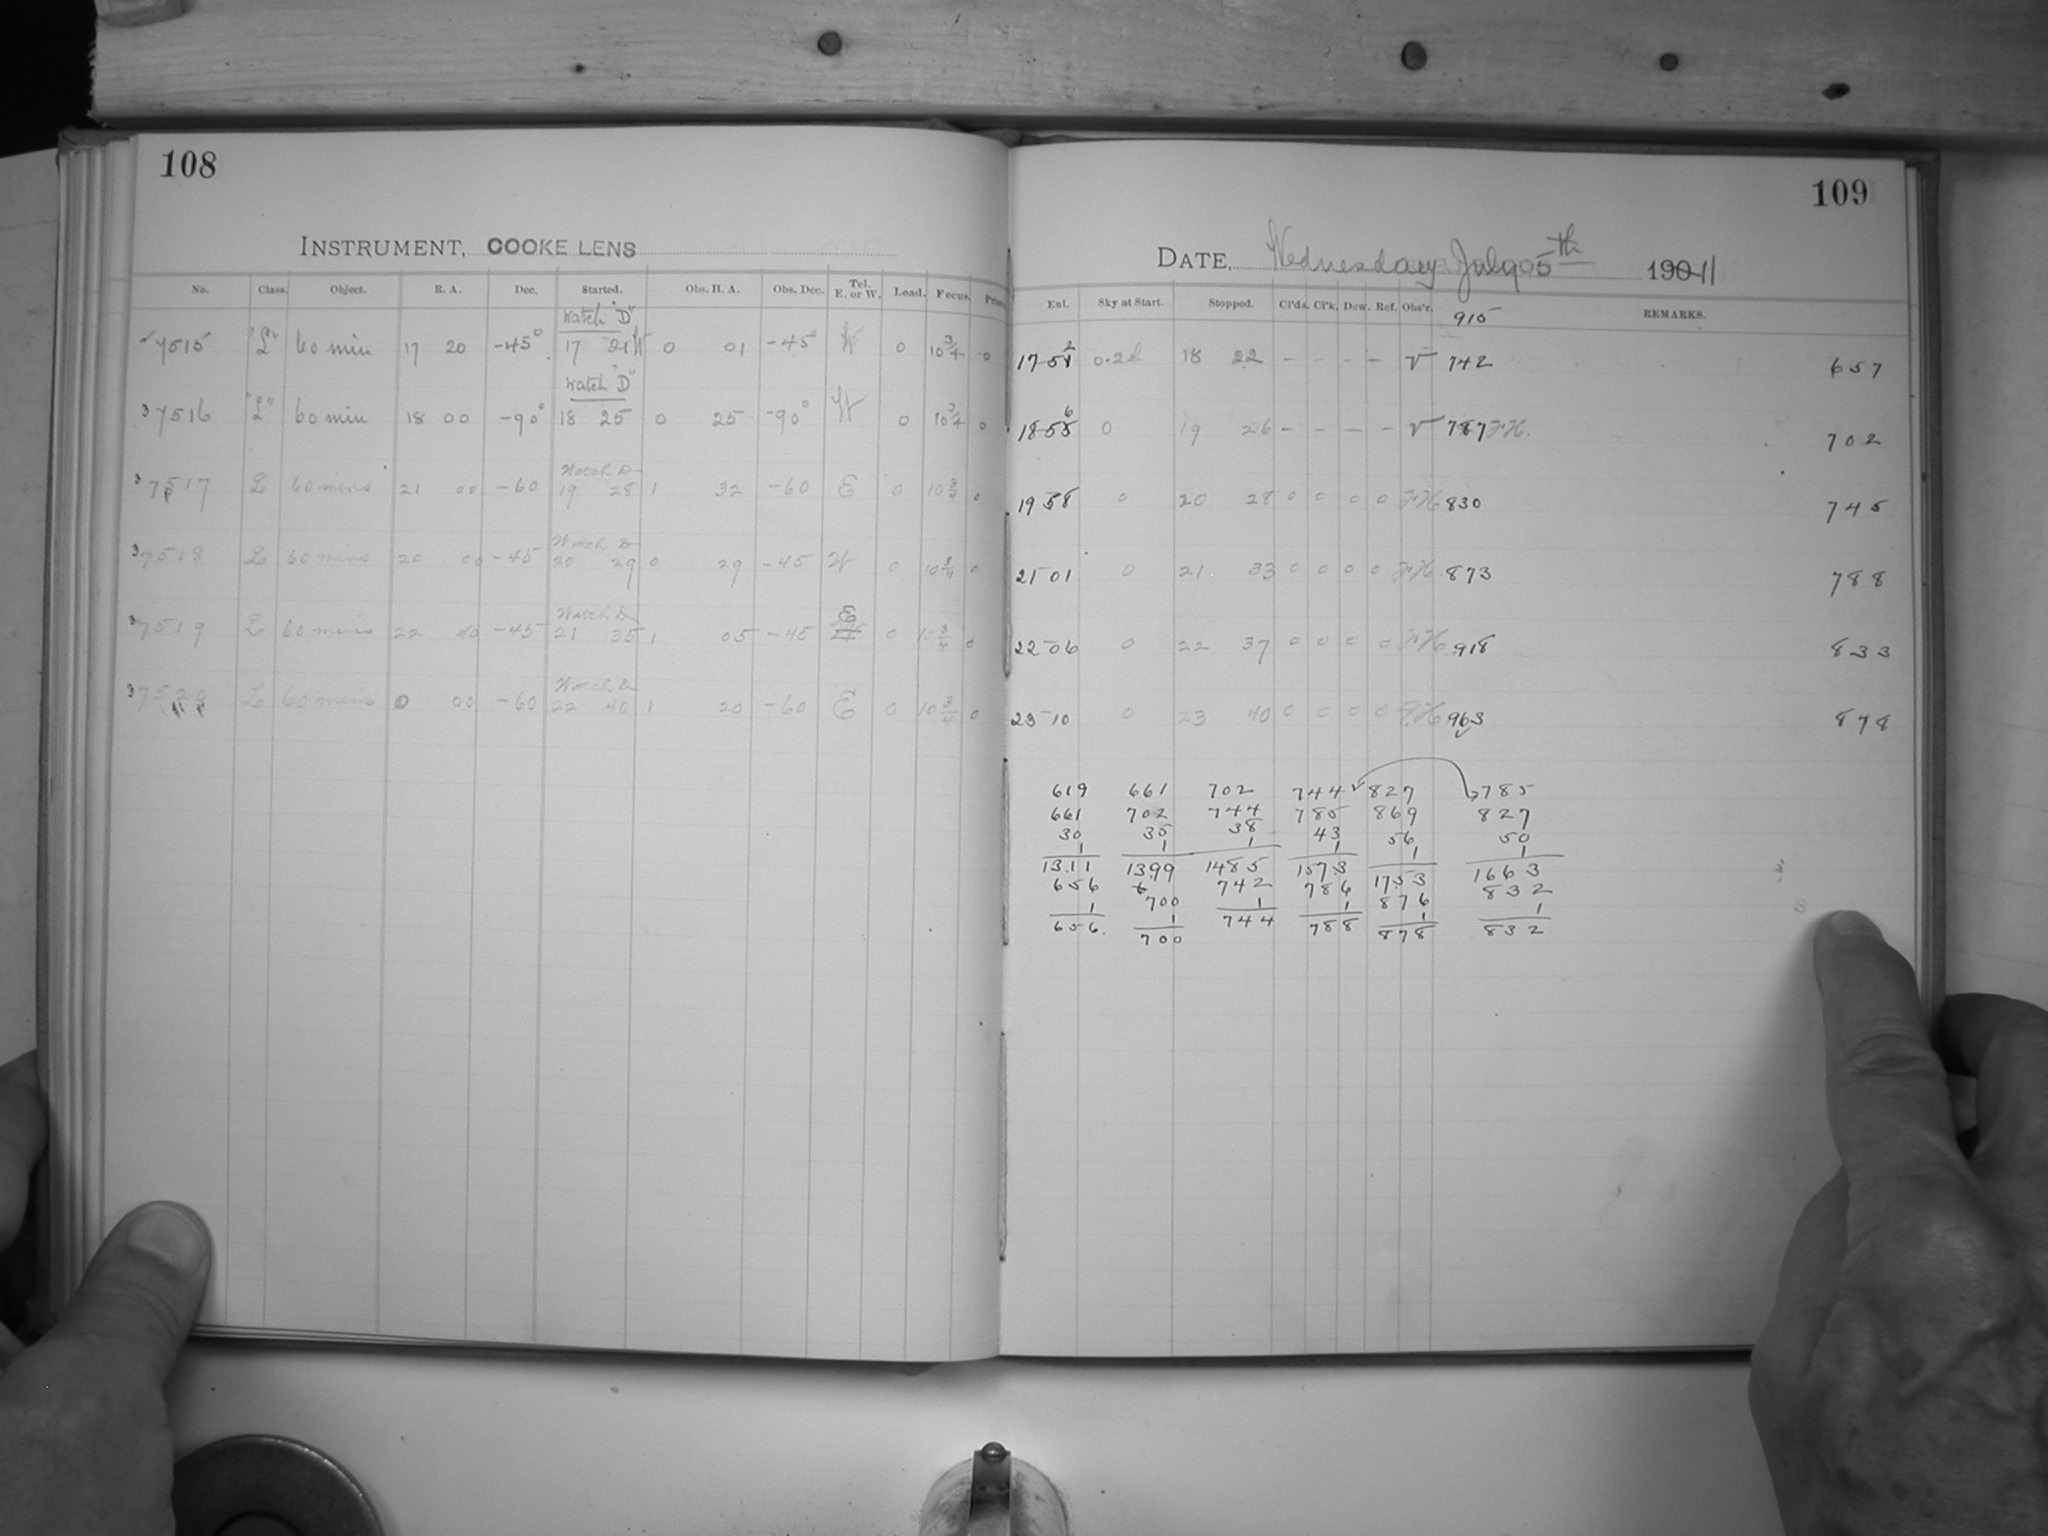 108
INSTRUMENT, COOKE LENS
No. Class. Object. R. A. Dec. Started. Obs. H. A. Obs. Dec. Tel. E. or W. Load. Focus.
Watch "D"
7515 "L" 60 min 17 20 -45° 17 21 W 0 01 -45° W 0 10 3/4 0
Watch "D"
37516 "L" 60 min 18 00 -90° 18 25 0 25 -90° W 0 10 3/4 0
Watch D
37517 L 60 mins 21 00 -60 19 28 1 32 -60 E 0 10 3/4 0
Watch D
37518 L 60 mins 20 00 -45 20 29 0 29 -45 W 0 10 3/4 0
Watch D
37519 L 60 mins 22 40 -45 21 35 1 05 -45 E 0 10 3/4 0
Watch D
L 60 mins 0 00 -60 22 40 1 20 -60 E 0 10 3/4 0
109
DATE, Wednesday July 5th 1911
Eul. Sky at Start. Stopped. Cl'ds. Cl'k. Dew. Ref. Obs'r. REMARKS.
915
17-52 18 22 - - - - V 742 657
18-56 0 19 26 - - - - V 787 F.H. 702
19 58 0 20 28 0 0 0 0 F.H. 830 745
21-01 0 21 33 0 0 0 0 F.H. 873 788
22-06 0 22 37 0 0 0 0 F.H. 918 833
23-10 0 23 40 0 0 0 0 F.H. 963 878
619 661 702 744 827 785
661 702 744 785 869 827
30 35 38 43 56 50
1 1 1 1 1 1
1311 1399 1485 1573 1753 1663
656 700 742 786 876 832
1 1 1 1 1 1
656 700 744 788 878 832